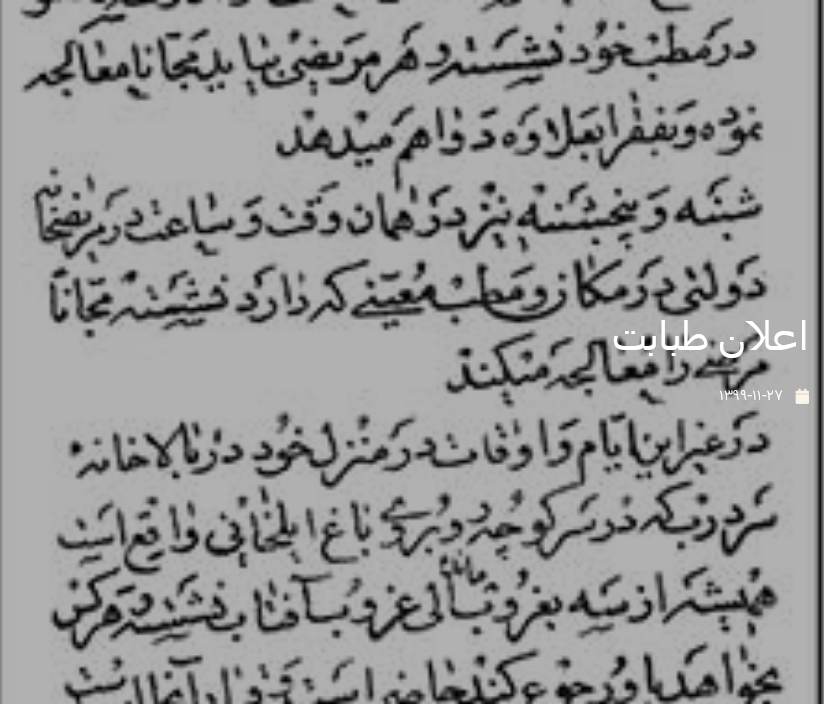 در مطب خود نشسته و هر مریضی بیاید مجانا معالجه
نموده و بفقرا بعلاوه دوا هم میدهد
شنبه و پنجشنبه نیز در همان وقت و ساعت در مریضخانه
دولتی در مکان و مطب معینی که دارد نشسته مجاناً
مرضی را معالجه میکند
در غیر این ایام و اوقات در منزل خود در بالاخانه
سردرب که در سر کوچه روبروی باغ ایلخانی واقع است
همیشه از سه بغروب مانده الی غروب آفتاب نشسته و هرکس
بخواهد باو رجوع کند حاضر است
اعلان طبابت
۱۳۹۹-۱۱-۲۷